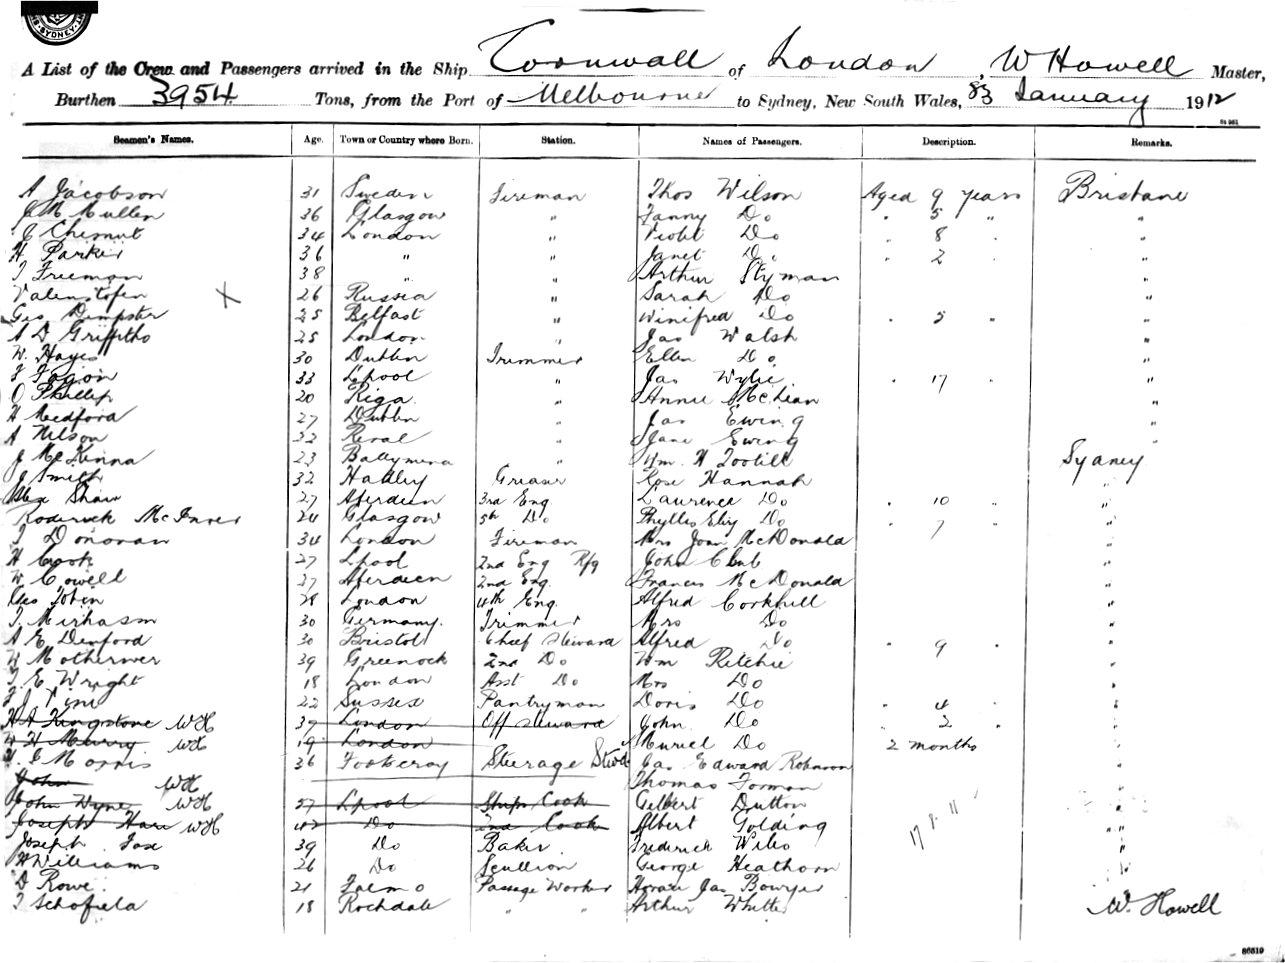 SYDNEY
A List of the Crew and Passengers arrived in the Ship Cornwall of London, W Howell Master,
Burthen 3954 Tons, from the Port of Melbourne to Sydney, New South Wales, January 1912
Seamen's Names. Age. Town or Country where Born. Station. Names of Passengers. Description. Remarks.
A Jacobson 31 Sweden Fireman Thos Wilson Aged 9 years Brisbane
J McMullen 36 Glasgow " Fanny Do " 5 " "
C Chesnut 34 London " Violet Do " 8 " "
H Parker 36 " " Janet Do " 2 " "
T Freeman 38 " " Arthur Styman "
X 26 Russia " Sarah Do "
Geo Dempster 25 Belfast " Winifred Do " 5 " "
A D Griffiths 25 London " Jas Walsh "
W. Hayes 30 Dublin Trimmer Ellen Do "
F Fagan 33 Lpool " Jas Wylie " 17 " "
O Phillip 20 Riga " Annie McLean "
H Medford 27 Dublin " Jas Ewing "
A Nilson 32 Reval " Jane Ewing "
J McKenna 23 Ballymena " Wm. H Tootill Sydney
J Smith 32 Greaser Rose Hannah "
Alex Shaw 27 Aberdeen 3rd Eng Laurence Do " 10 " "
Roderick McInnes 24 Glasgow 5th Do Phyllis Do " 7 " "
T Donovan 34 London Fireman Mrs McDonald "
H Cook 27 Lpool 2nd Eng Rfg John "
W Cowell 37 Aberdeen 2nd Eng. Francis McDonald "
Geo Tobin 28 London 4th Eng. Alfred Corkhill "
T. 30 Germany Trimmer Mrs Do "
A E Denford 30 Bristol Chief Steward Alfred Do " 9 " "
W 39 Greenock 2nd Do Wm Ritchie "
T. E Wright 18 London Asst Do Mrs Do "
22 Sussex Pantryman Doris Do " 4 " "
H A Kingstone WH 37 London Off Steward John Do " 2 " "
H Murry WH 19 London Muriel Do 2 months "
E Morris 36 Footscray Steerage Stwd Jas Edward Robinson "
John WH Thomas Forman
John Wyne WH 27 Lpool Ships Cook Gilbert Dutton
Joseph Hare WH 42 Do 2nd Cook Albert Golding "
Joseph Fox 39 Do Baker Frederick "
Williams 26 Do Scullion George Heathorn
D Rowe 21 Passage Worker Horace Jas Bowyer
T Schofield 18 Rochdale " " Arthur W. Howell
86519